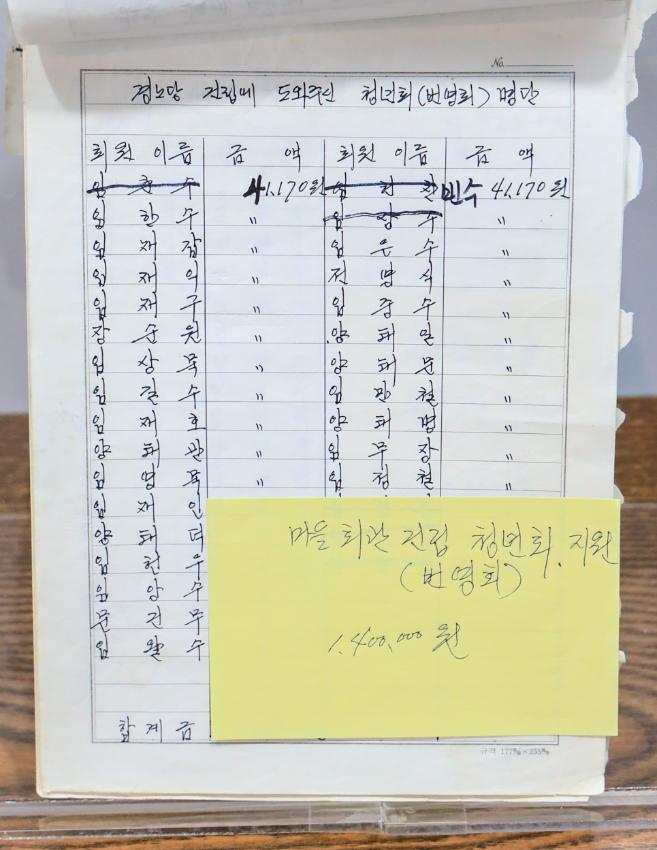 No.
경노당 건립에 도와주신 청년회(번영회) 명단
회원 이름 금 액 회원 이름 금 액
임 수 41,170원 임 민수 41,170원
임 한 수 〃 임 수 〃
임 재 잠 〃 임 은 수 〃
임 재 억 〃 전 명 식 〃
임 재 구 〃 임 중 수 〃
장 순 원 〃 양 태 일 〃
임 상 묵 〃 양 태 문 〃
임 길 수 〃 임 판 철 〃
임 재 호 〃 양 태 명 〃
양 태 관 〃 임 무 장 〃
임 영 묵 〃 임 정 철 〃
임 재 인
양 태 덕
임 천 우
임 양 수
문 건 무
임 왈 수
합 계 금
마을 회관 건립 청년회. 지원
(번영회)
1,400,000 원
규격 177㎜×255㎜